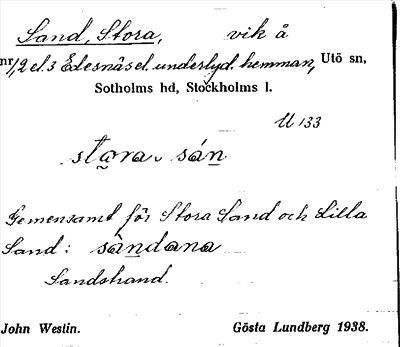 Sand, Stora, vik å
nr 1,2 el. 3 Edesnäs el. underlyd. hemman, Utö sn,
Sotholms hd, Stockholms l.
U 133
stora sán
Gemensamt för Stora Sand och Lilla
Sand: sàndana
Sandstrand.
John Westin. Gösta Lundberg 1938.